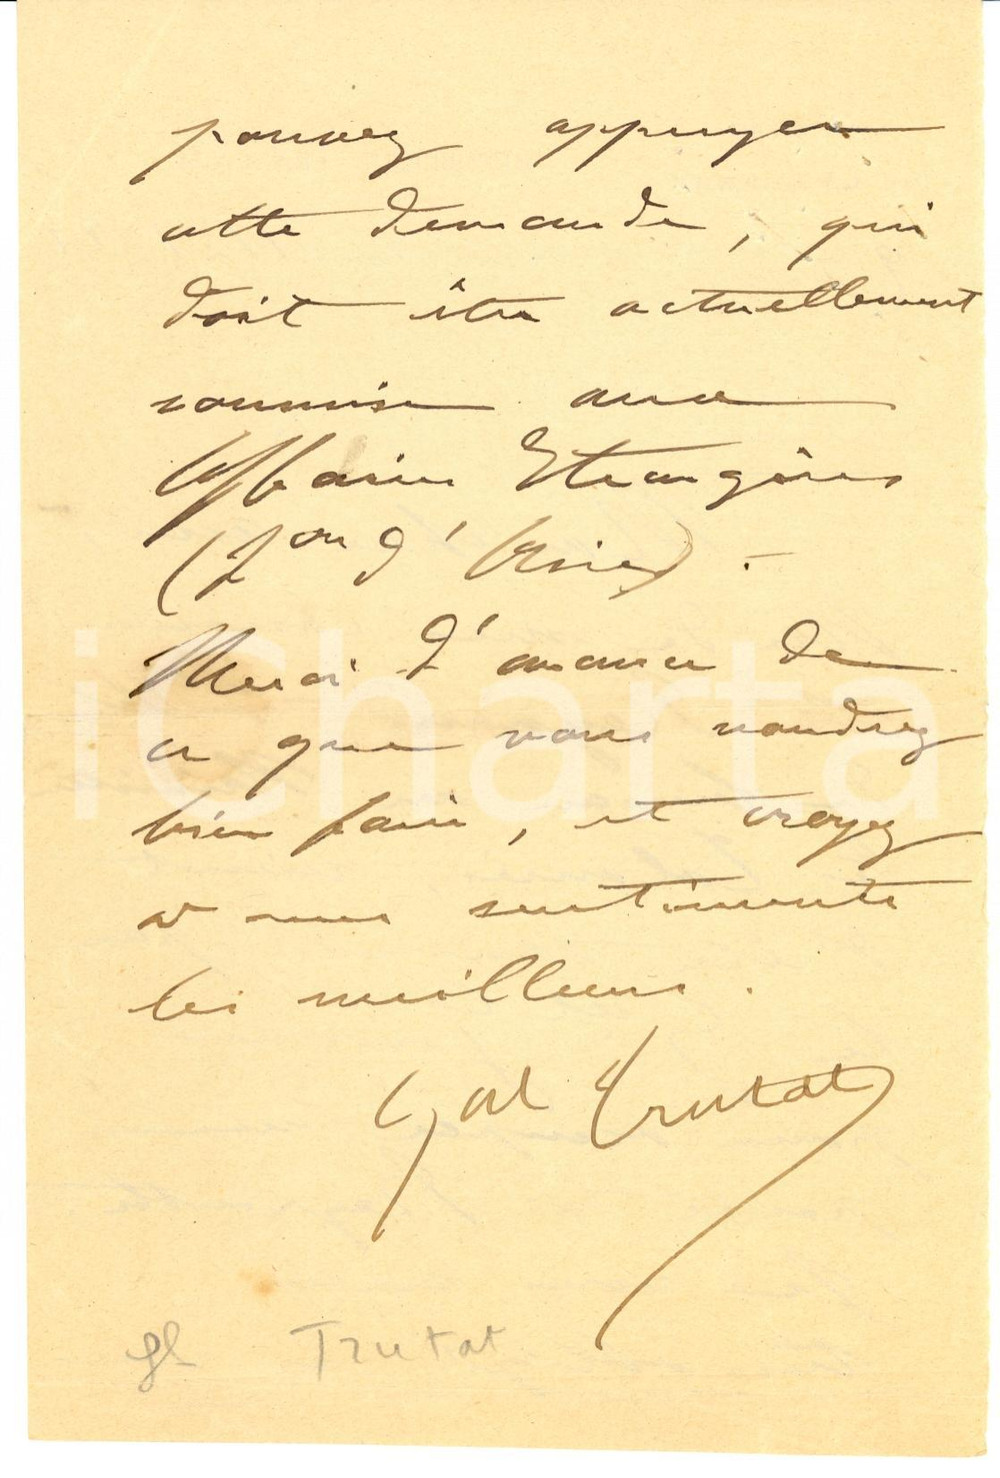 pouvez appuyer
cette demande, qui
doit être actuellement
soumise aux
Affaires Etrangères
(Son d'Asie). –
Merci d'avance de
ce que vous voudrez
bien faire, et croyez
à mes sentiments
les meilleurs.
Gal Trutat
Gl Trutat
iCharta